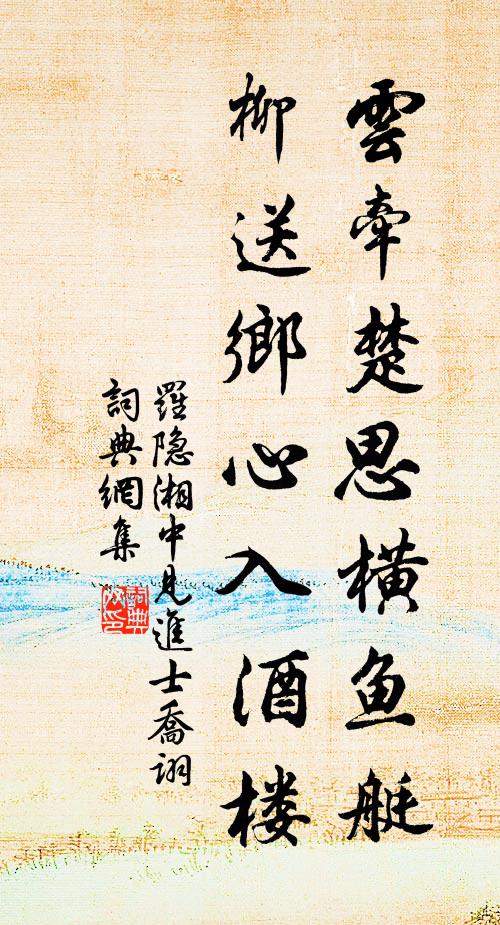 雲牽楚思橫鱼艇
柳送鄉心入酒楼
羅隐湘中見進士喬詡
詞典網集